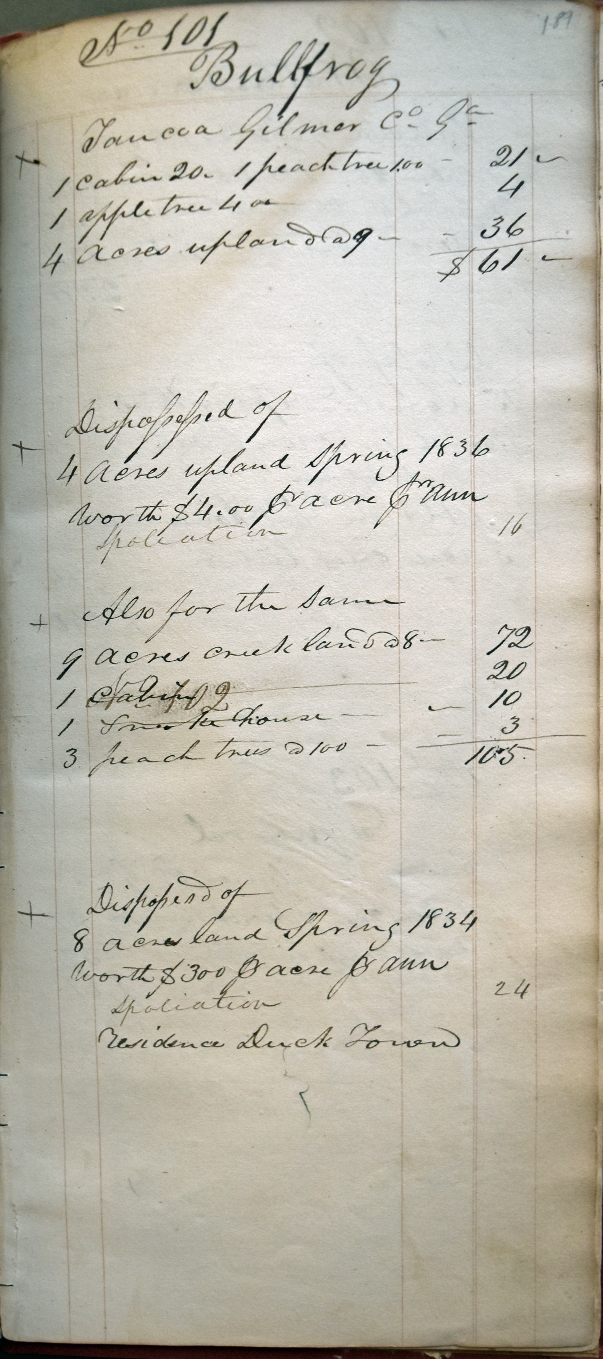 189
No 101
Bullfrog
Taucoa Gilmer Co Ga
1 cabin 20. 1 peach tree 1.00 - 21 -
1 apple tree 4 00 4
4 acres upland @ 9 - - 36
$ 61 -
Dispossessed of
4 acres upland Spring 1836
worth $4.00 pr acre pr ann
Spoliation 16
Also for the same
9 acres creek land @ 8 - 72
1 cabin 20
1 Smoke house - - 10
3 peach trees @ 100 - - 3
105
Disposesd of
8 acres land Spring 1834
worth $300 pr acre pr ann
Spoliation 24
residence Duck Town